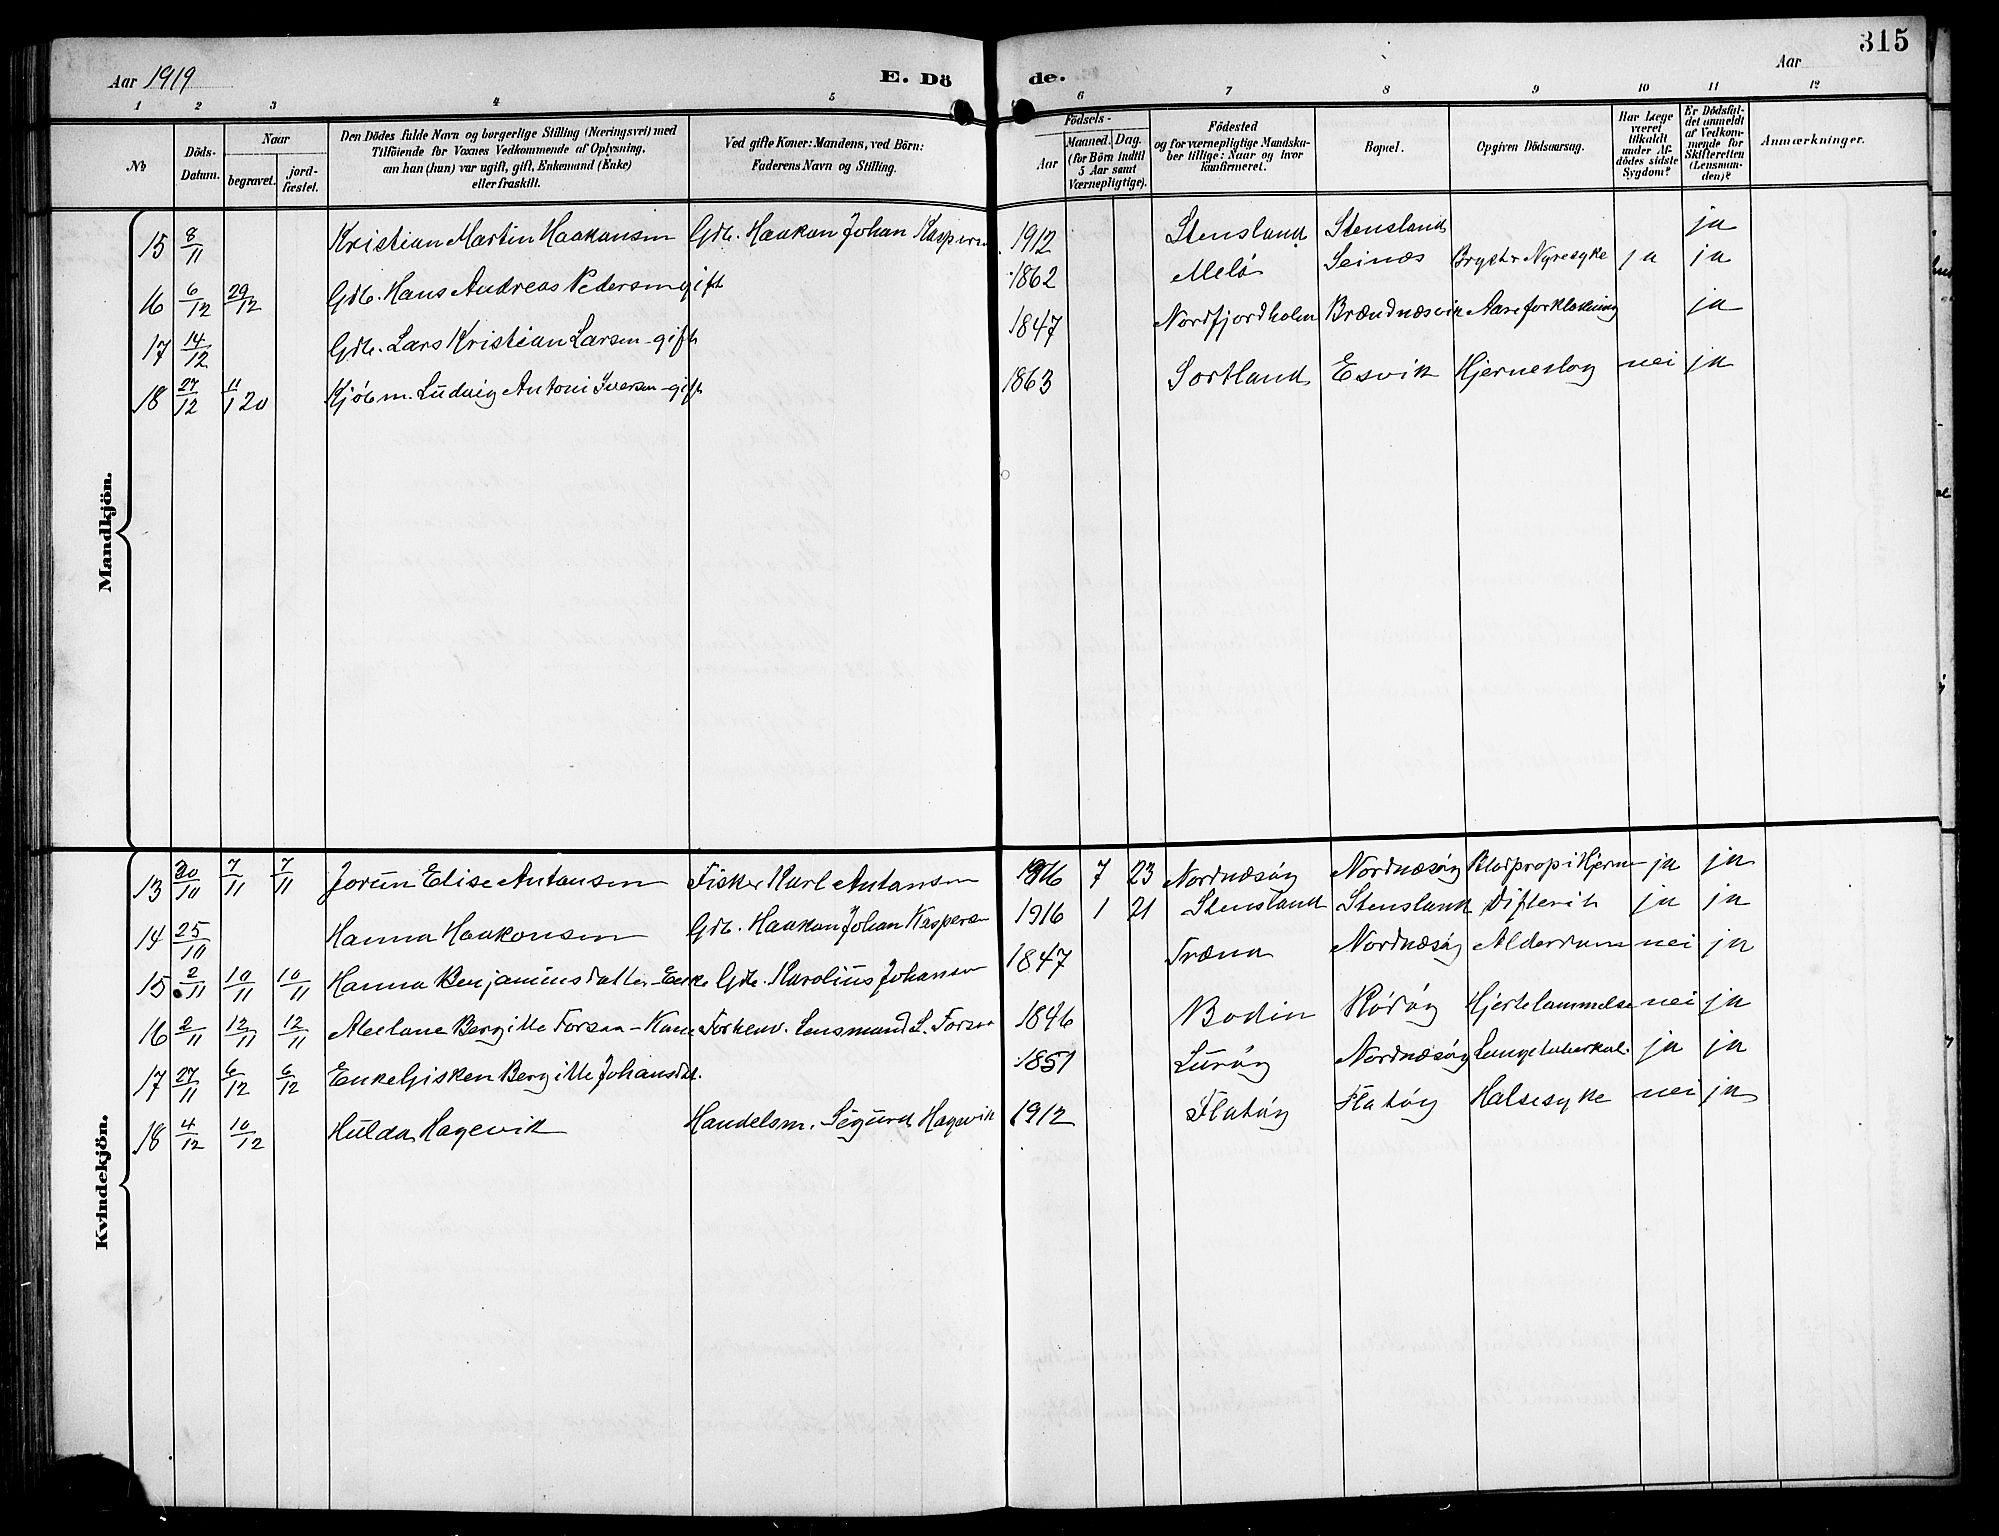 315
Aar 1919
E. Dö de.
Aar
1 2 3 4 5 6 7 8 9 10 11 12
No
Döds-Datum.
Naar
begravet.
jord-fæstet.
Den Dödes fulde Navn og borgerlige Stilling (Næringsvei) med
Tilföiende for Voxnes Vedkommende af Oplysning,
om han (hun) var ugift, gift, Enkemand (Enke)
eller fraskilt.
Ved gifte Koner: Mandens, ved Börn:
Faderens Navn og Stilling.
Födsels-
Aar
Maaned. Dag.
(for Börn indtil
5 Aar samt
Værnepligtige).
Födested
og for værnepligtige Mandskaber tillige: Naar og hvor
konfirmeret.
Bopæl.
Opgiven Dödsaarsag.
Har Læge
været
tilkaldt
under Afdödes sidste
Sygdom?
Er Dödsfaldet anmeldt
af Vedkommende for
Skifteretten
(Lensmanden)?
Anmærkninger.
Mandkjön.
15 8/11 Kristian Martin Haakonsen Gdb. Haakon Johan Kaspersen 1912 Stensland Stensland ja
16 6/12 29/12 Gdb. Hans Andreas Pedersen gift 1862 Melö Seines Bryst & Nyresyke ja ja
17 14/12 Gdb. Lars Kristian Larsen - gift 1847 Nordfjordholm Brændnæsvik Aareforkalkning ja
18 27/12 11/1 20 Kjöbm. Ludvig Antoni Iversen - gift 1863 Sortland Esvik Hjerneslag nei ja
Kvindekjön.
13 30/10 7/11 7/11 Jorun Elise Antonsen Fisker Karl Antonsen 1916 7 23 Nordnæsöy Nordnæsöy Blodprop i Hjerne ja ja
14 25/10 Hanna Haakonsen Gdb. Haakon Johan Kaspersen 1916 1 21 Stensland Stensland Difterit ja ja
15 2/11 10/11 10/11 Hanna Benjaminsdatter - Enke Gdb. Karolius Johansen 1847 Træna Nordnæsöy Alderdom nei ja
16 2/11 12/11 12/11 Bergitte Forsaa - Kone Forhenv. Lensmand L. Forsaa 1846 Bodin Rödöy Hjertelammelse nei ja
17 27/11 6/12 6/12 Enke Gisken Bergitte Johansdat. 1851 Luröy Nordnæsöy Lungetuberkul. ja ja
18 4/12 10/12 Hulda Hagevik Handelsm. Sigurd Hagevik 1912 Flatöy Flatöy Halsesyke nei ja